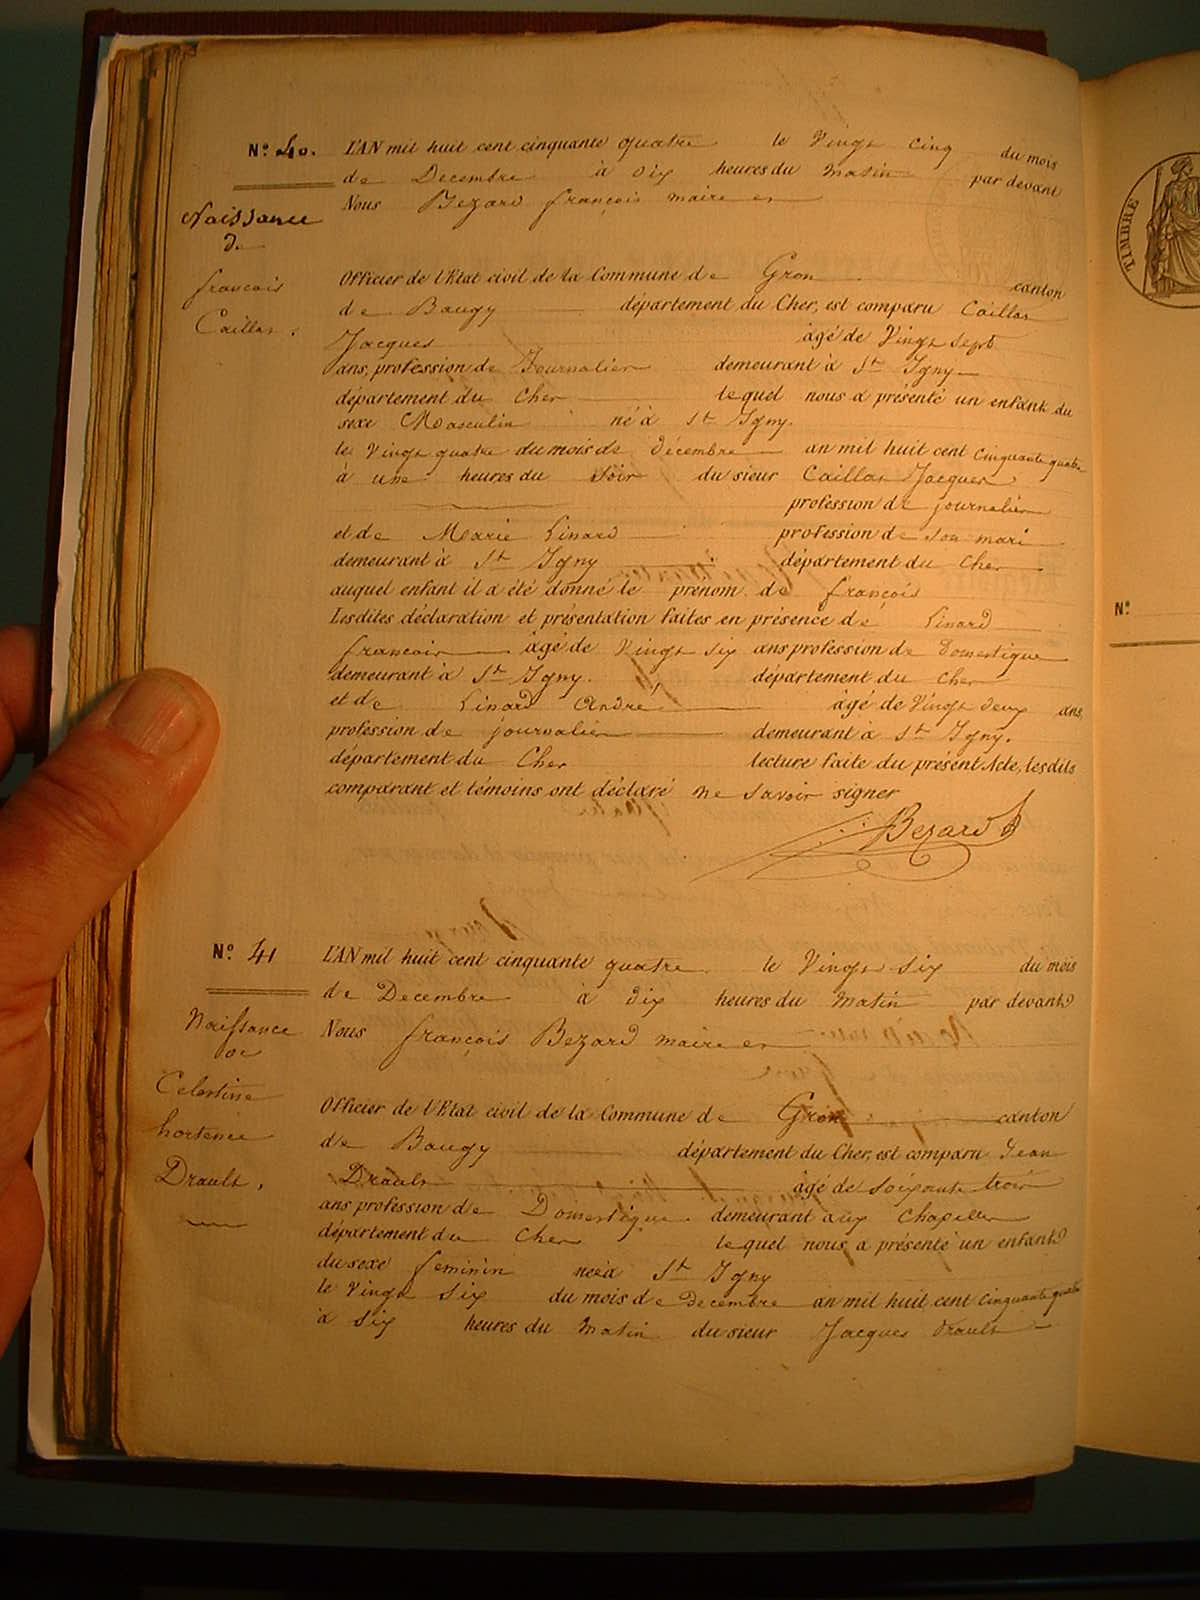 N.º 40. L'AN mil huit cent cinquante quatre le Vingt Cinq du mois
de Decembre à dix heures du Matin par devant
Nous Bezard françois maire et
Naissance
de
françois
Caillat.
Officier de l'Etat civil de la Commune de Gron canton
de Baugy département du Cher, est comparu Caillat
Jacques âgé de Vingt Sept
ans, profession de Journalier demeurant à St Igny
département du Cher lequel nous a présenté un enfant du
sexe Masculin né à St Igny.
le Vingt quatre du mois de décembre an mil huit cent Cinquante quatre
à une heures du Soir du sieur Caillat Jacques
profession de journalier
et de Marie Linard profession de son mari
demeurant à St Igny département du Cher
auquel enfant il a été donné le prénom de françois
Lesdites déclaration et présentation faites en présence de Linard
françois âgé de Vingt six ans profession de Domestique
demeurant à St Igny. département du Cher
et de Linard André âgé de Vingt deux ans,
profession de journalier demeurant à St Igny.
département du Cher lecture faite du présent Acte, lesdits
comparant et témoins ont déclaré ne savoir signer
Bezard
N.º 41 L'AN mil huit cent cinquante quatre le Vingt Six du mois
de Decembre à dix heures du Matin par devant
Nous françois Bezard maire et
Naissance
de
Celestine
hortence
Drault.
Officier de l'Etat civil de la Commune de Gron canton
de Baugy département du Cher, est comparu Jean
Drault âgé de soixante trois
ans profession de Domestique demeurant aux Chapelles
département du Cher lequel nous a présenté un enfant
du sexe feminin née à St Igny
le Vingt Six du mois de Decembre an mil huit cent Cinquante quatre
à Six heures du Matin du sieur Jacques Drault
TIMBRE
N.º